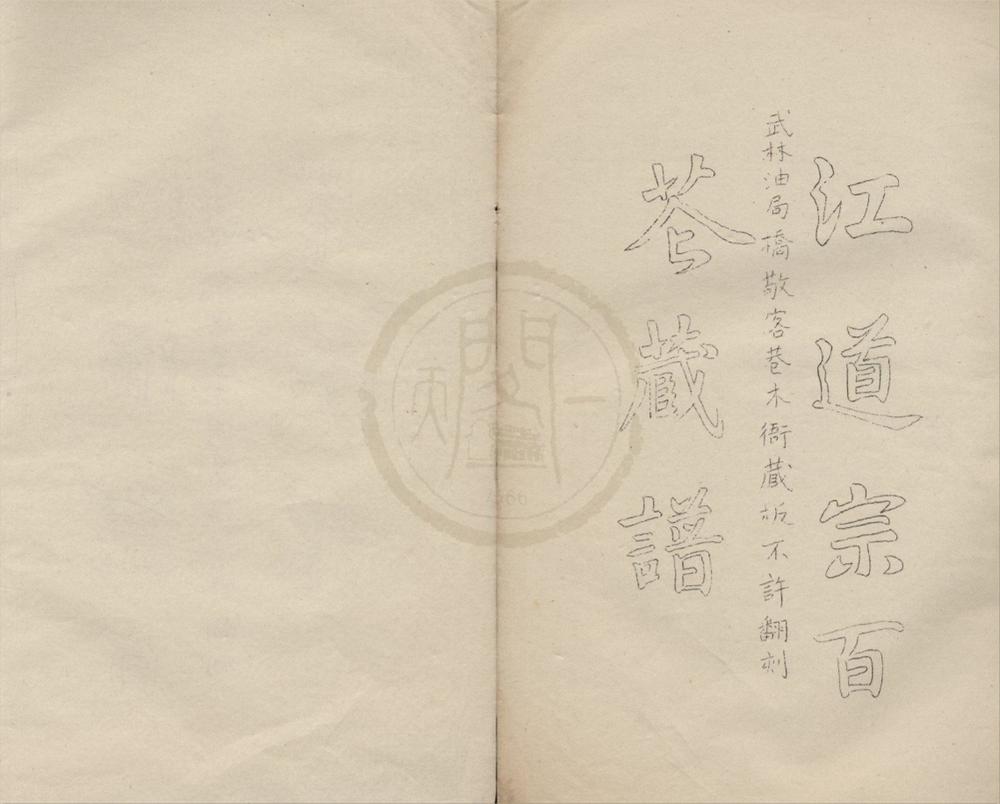 江道宗百
武林油局橋敬客巷木衙蔵板不許翻刻
苍蔵譜